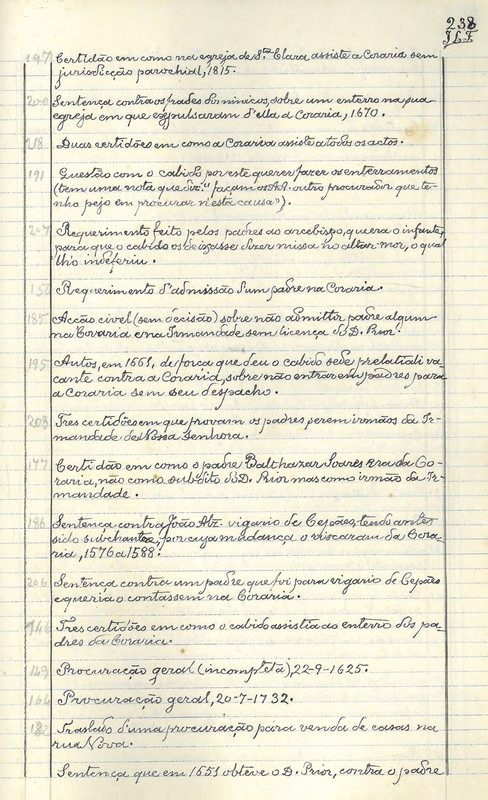 238
J.L.F.
197 Certidão em como na egreja de S.ta Clara assiste a Coraria sem
jurisdicção parochial, 1815.
200 Sentença contra os frades dominicos, sobre um enterro na sua
egreja em que expulsaram d'ella a Coraria, 1670.
218 Duas certidões em como a Coraria assiste a todos os actos.
191 Questão com o cabido por este querer fazer os enterramentos
(tem uma nota que diz: "façam os AA. outro procurador que te-
nho pejo em procurar n'esta causa").
207 Requerimento feito pelos padres ao arcebispo, que era o infante,
para que o cabido os deixasse dizer missa no altar-mor, o qual
lh'o indeferiu.
150 Requerimento d'admissão d'um padre na Coraria.
185 Acção civel (sem decisão) sobre não admittir padre algum
na Coraria e na Irmandade sem licença do D. Prior.
195 Autos, em 1661, de força que deu o cabido sede prelatiali va-
cante contra a Coraria, sobre não entrarem padres para
a Coraria sem seu despacho.
208 Tres certidões em que provam os padres serem irmãos da Ir-
mandade de Nossa Senhora.
177 Certidão em como o padre Balthazar Soares era da Co-
raria, não como subdito do D. Prior mas como irmão da Ir-
mandade.
186 Sentença contra João Alz. vigario de Cepães, tendo antes
sido subchantre, por cuja mudança o riscaram da Cora-
ria, 1576 a 1588.
206 Sentença contra um padre que foi para vigario de Cepães
e queria o contassem na Coraria.
146 Tres certidões em como o cabido assistia ao enterro dos pa-
dres da Coraria.
149 Procuração geral (incompleta), 22-9-1625.
164 Procuração geral, 20-7-1732.
182 Traslado d'uma procuração para venda de casas na
rua Nova.
Sentença que em 1651 obteve o D. Prior, contra o padre